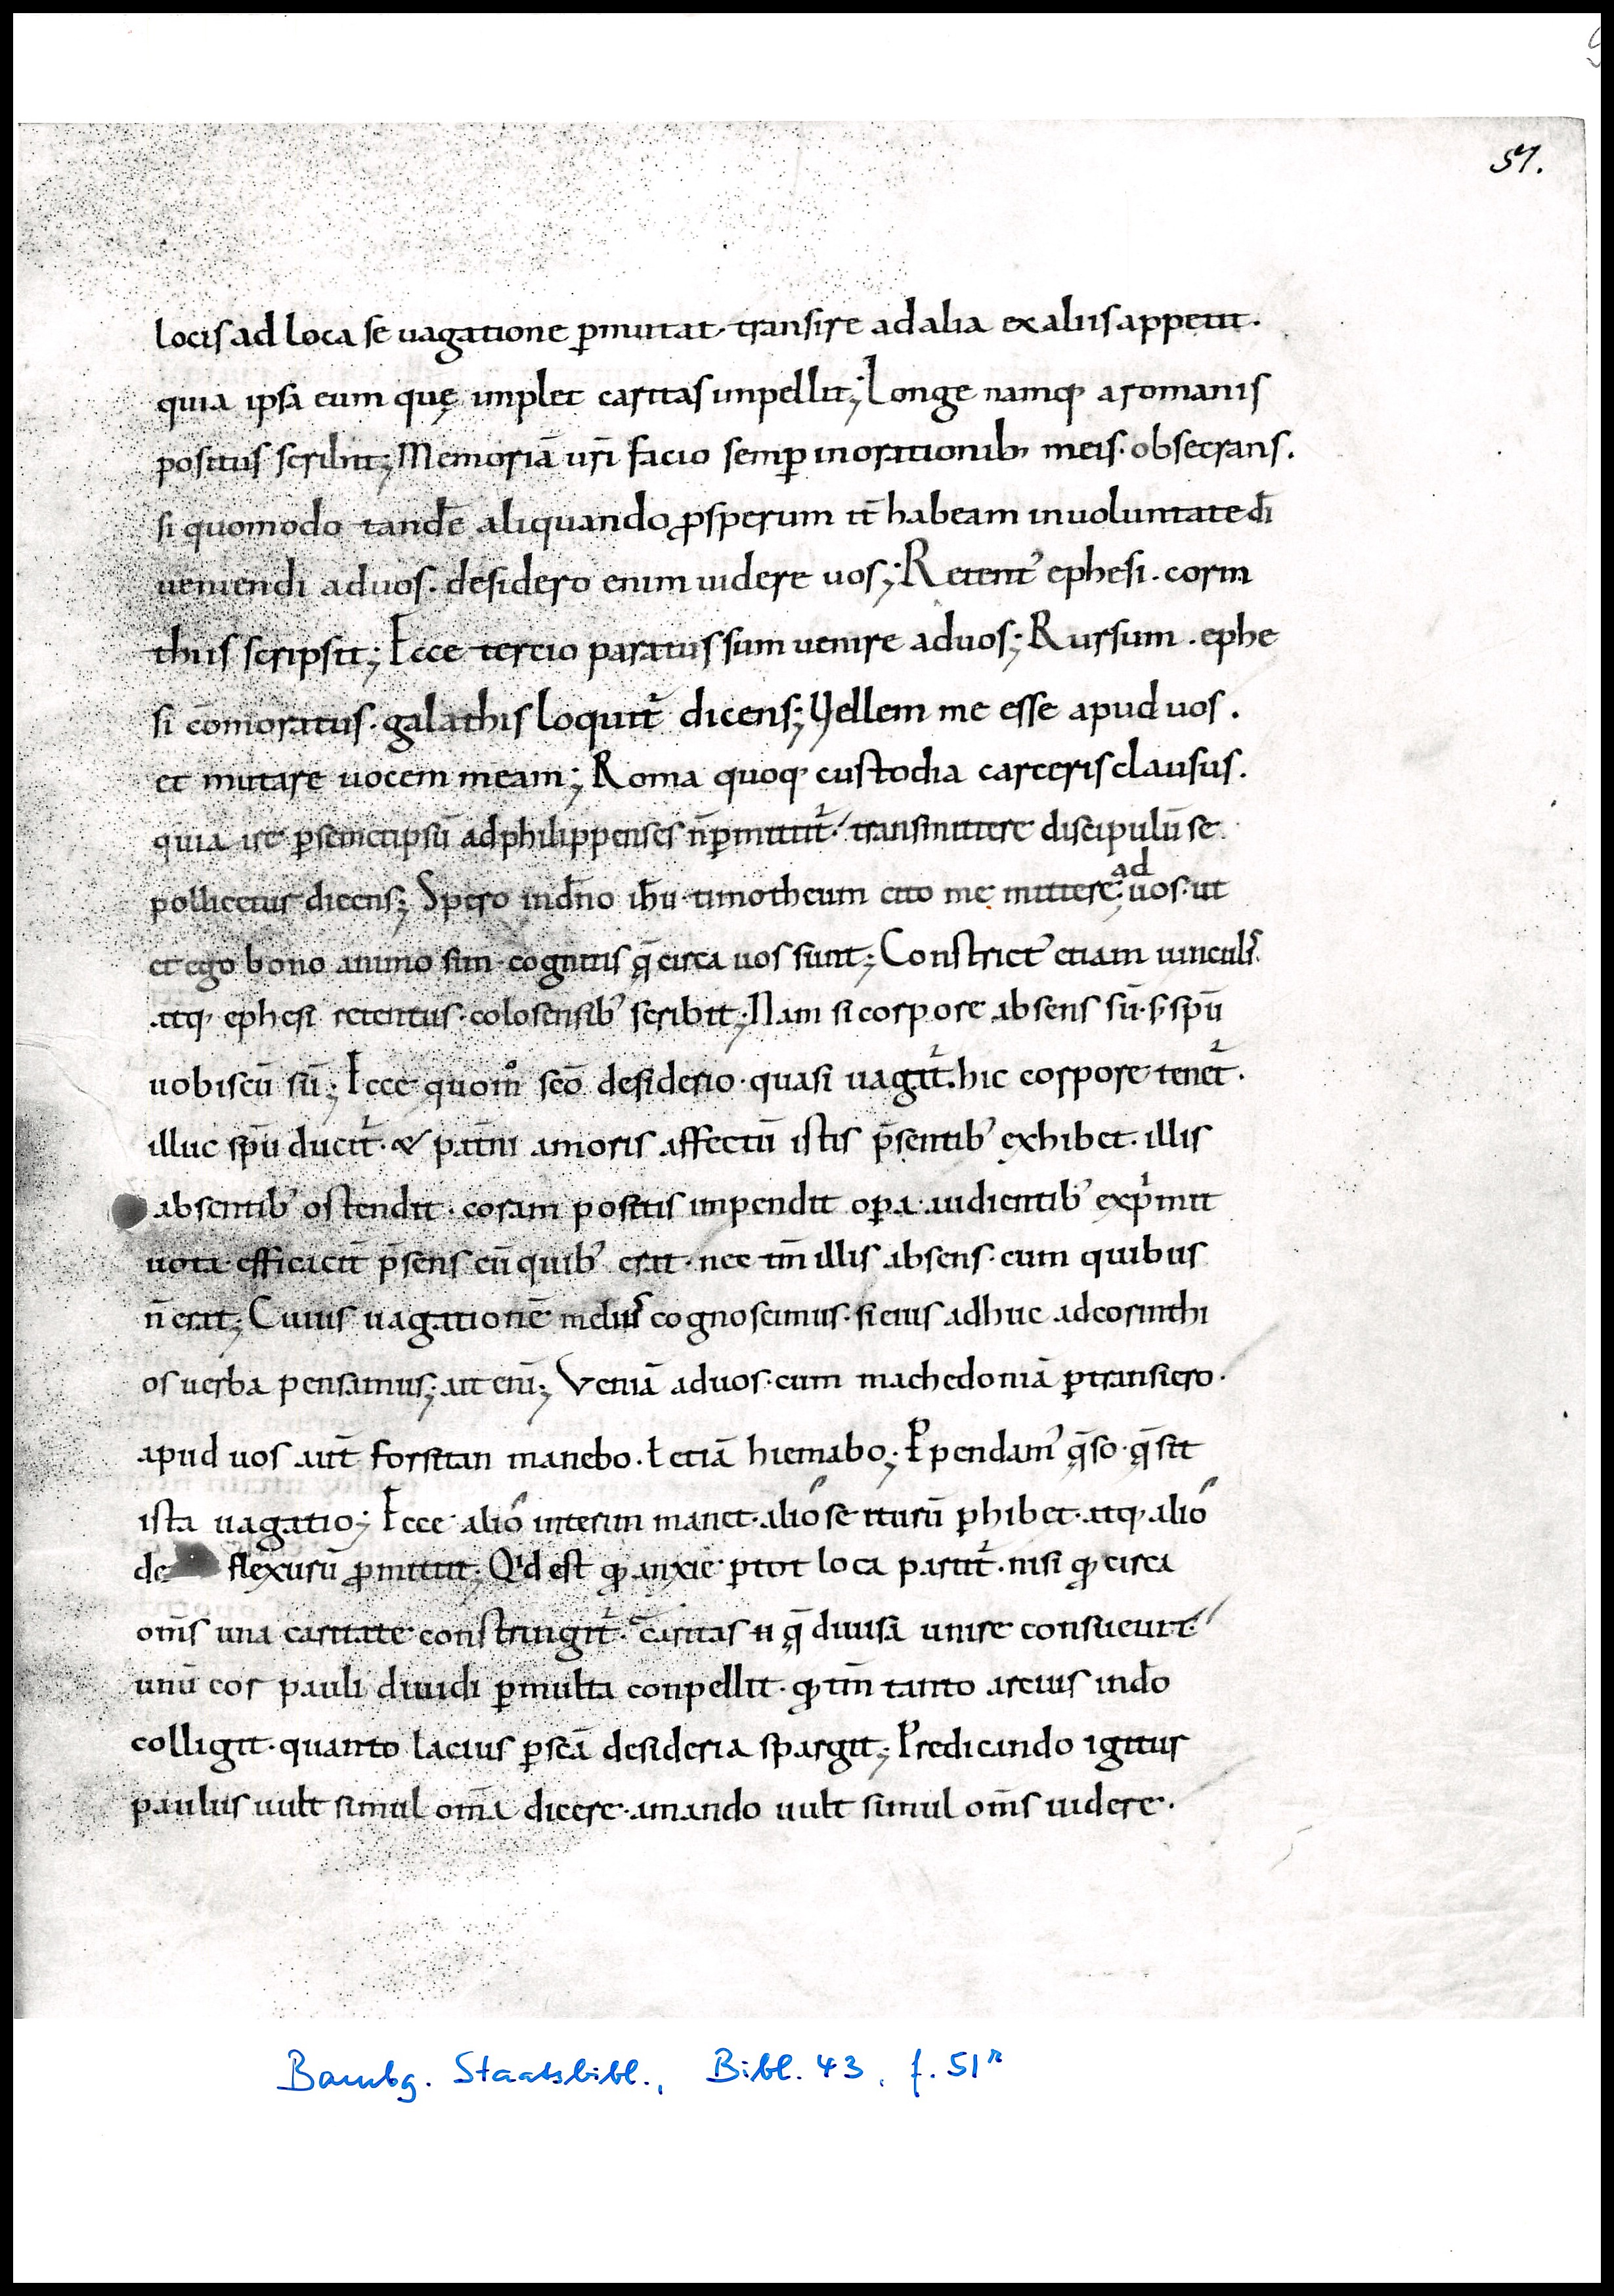 51.
locis ad loca se uagatione p̄mutat· transire ad alia ex aliis appetit·
quia ipsa eum quę implet caritas inpellit; Longe namq; a romanis
positus scribit; Memoriā urī facio semp̄ in orationib; meis· obsecrans·
si quomodo tandē aliquando ꝓsperum it̄ habeam in uoluntate dī
ueniendi ad uos· desidero enim uidere uos; Retent᾽ ephesi· corin
thiis scripsit; Ecce tercio paratus sum uenire ad uos; Rursum· ephe
si cōmoratus· galathis loquit᷑ dicens; Vellem me esse apud uos·
et mutare uocem meam; Roma quoq; custodia carceris clausus·
quia ire p̄ semetipsū ad philippenses n̄ p̄mittit᷑· transmittere discipulū se
pollicetur dicens; Spero in dn̄o ihū· timotheum cito me mittere ad uos· ut
et ego bono animo sim· cognitis q̄ circa uos sunt; Constrict᾽ etiam uinculis·
atq; ephesi retentus· colosensib᾽ scribit; Nam si corpore absens sū· s; spū
uobiscū sū; Ecce quom̊ scō desiderio· quasi uagat᷑· hic corpore tenet᷑·
illuc spū ducit᷑· & pat̄ni amoris affectū istis p̄sentib᾽ exhibet· illis
absentib᾽ ostendit· coram positis inpendit op̄a· audientib᾽ exp̍mit
uota· efficacit̄ p̄sens cū quib᾽ erat· nec tn̄ illis absens· cum quibus
n̄ erat; Cuius uagationē melius cognoscimus· si eius adhuc ad corinthi
os uerba pensamus; ait enī; Veniā ad uos· cum machedoniā p̄transiero·
apud uos aut̄ forsitan manebo· ł etiā hiemabo; P̄pendam᾽ q̄so· q̄ sit
ista uagatio; Ecce alio interim manet· alio se iturū p̄hibet· atq; alio
de flexurū ꝓmittit; Q̍d est qd̄ anxie p̄ tot loca partit᷑· nisi qd̄ circa
om̄s una caritate constringit᷑· caritas n̄ q̄ diuisa unire consueuit·
unū cor pauli diuidi p̄ multa conpellit· qd̄ tn̄ tanto arcius in dō
colligit· quanto lacius p̄ scā desideria spargit; Predicando igitur
paulus uult simul om̄a dicere· amando uult simul om̄s uidere·
Bambg. Staatsbibl., Bibl. 43, f. 51ʳ